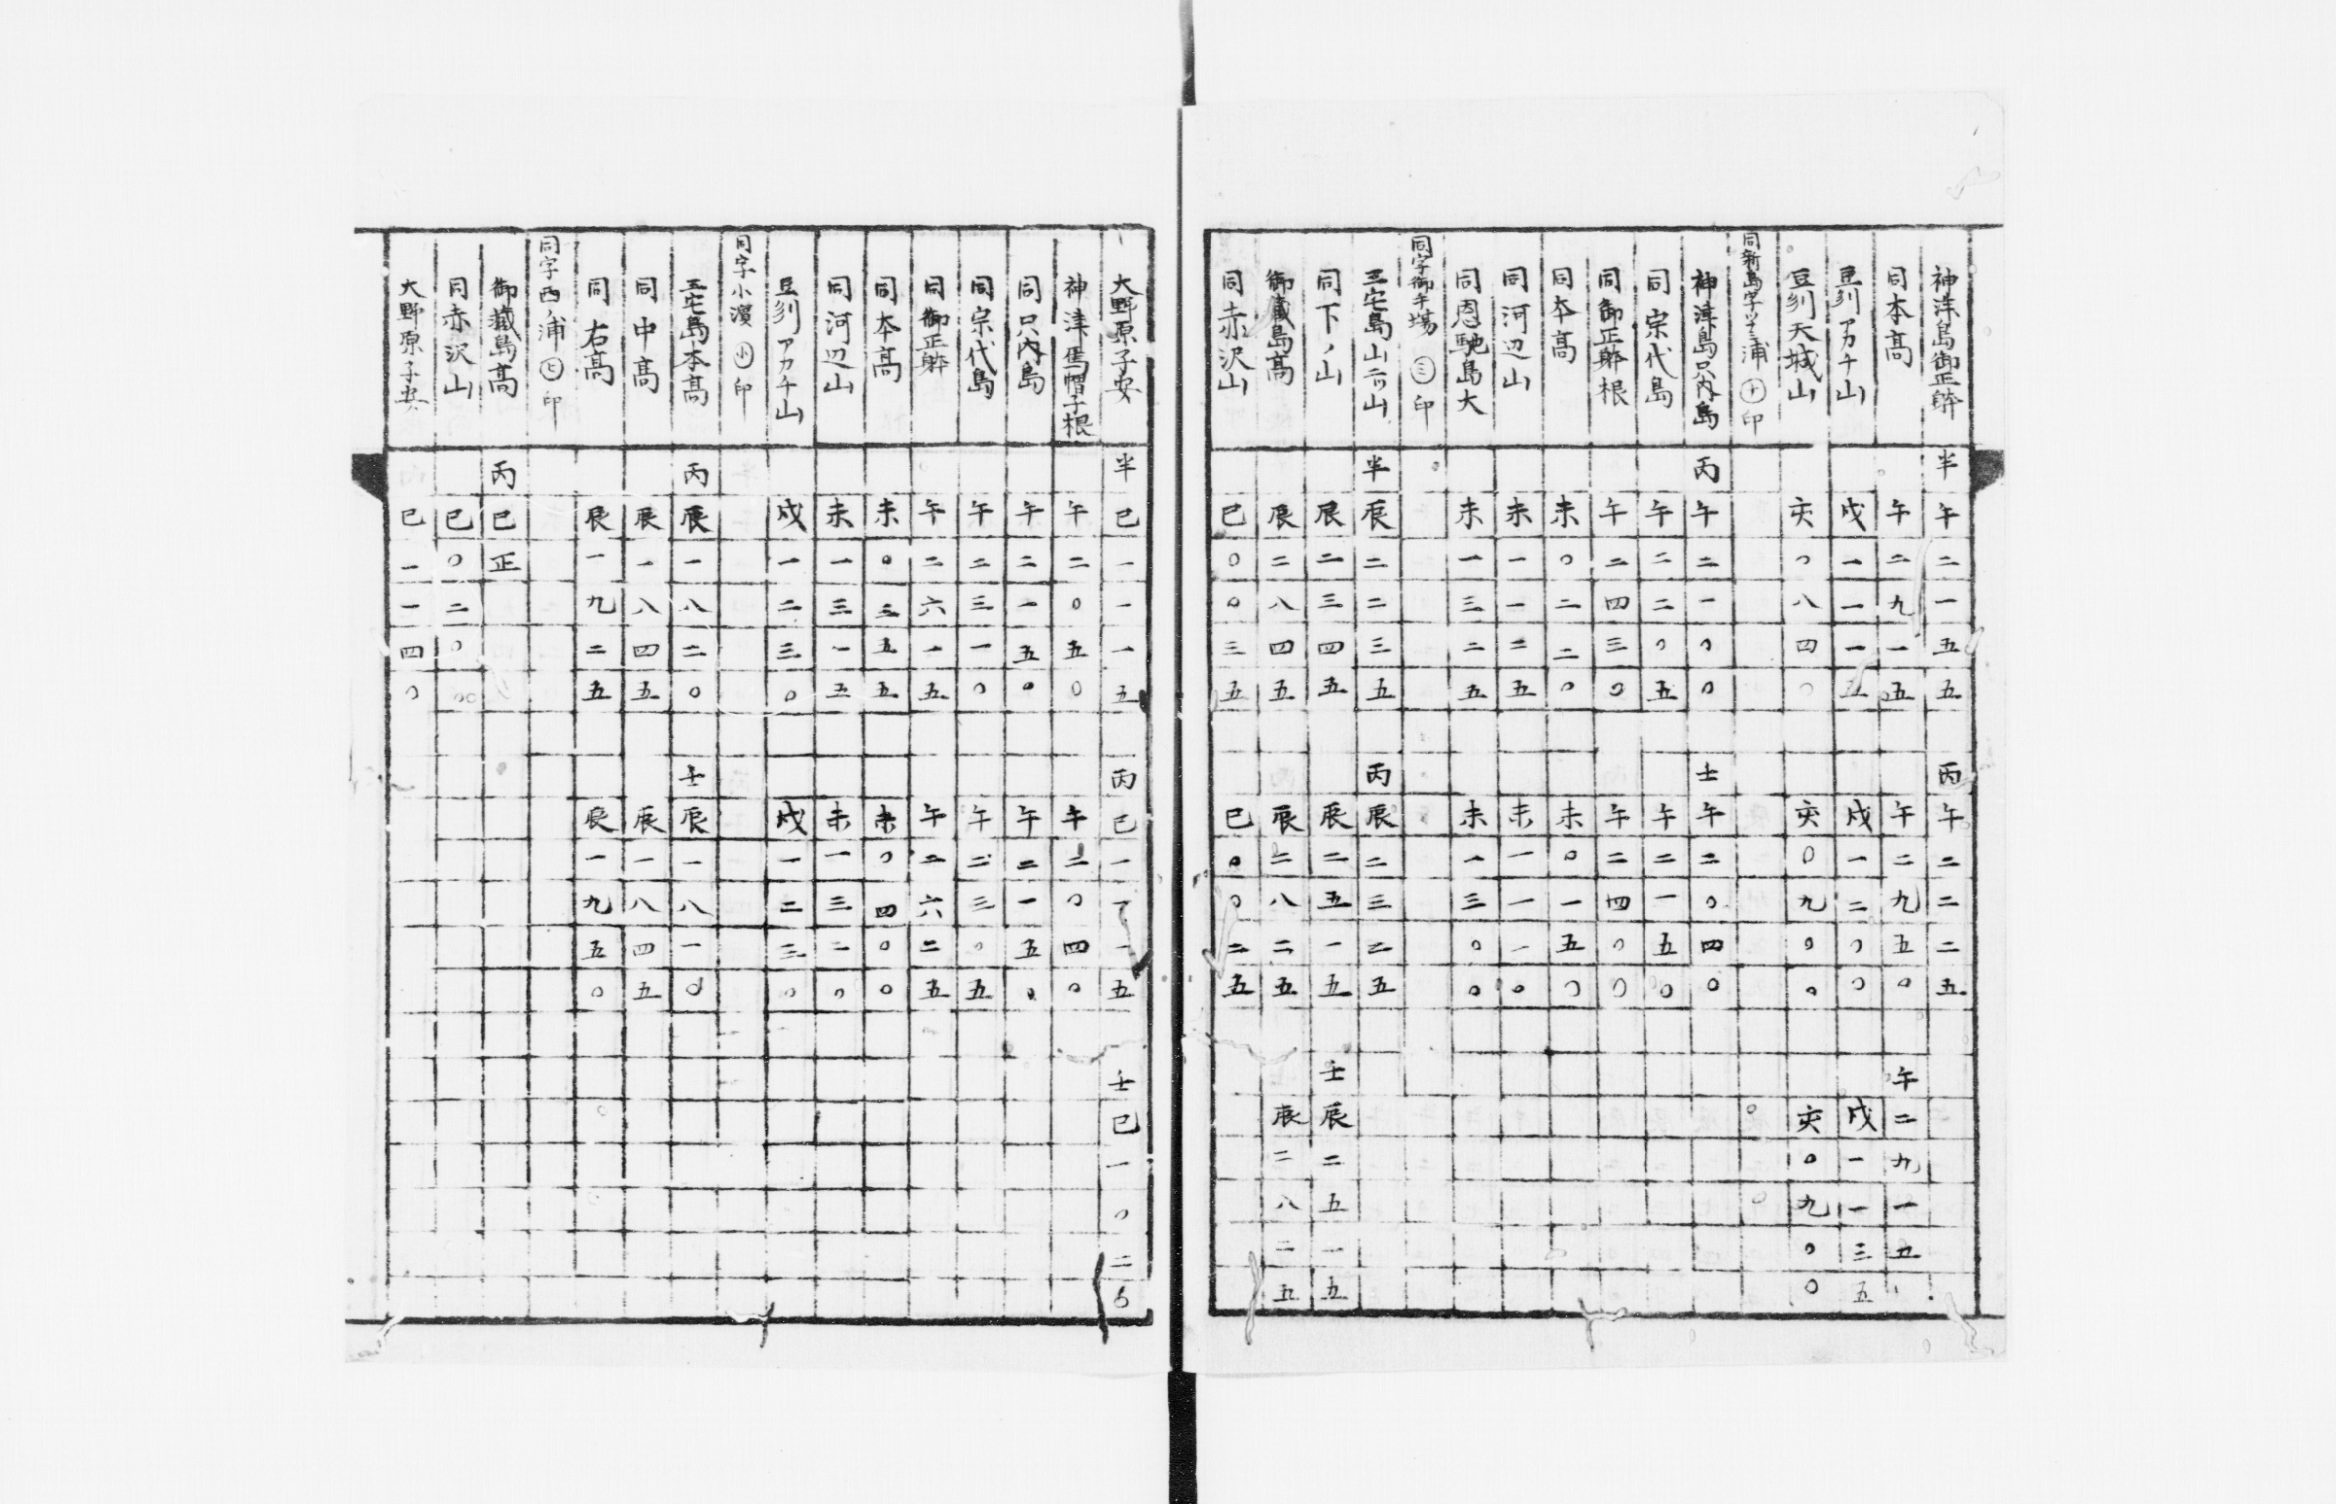 神津島御正躰 半午二一五五 丙午二二二五
同本高 午二九一五 午二九五〇 午二九一五
豆刕アカチ山 戌一一一五 戌一二〇〇 戌一一三五
豆刕天城山 亥〇八四〇 亥〇九〇〇 亥〇九〇〇
同新島字 浦 十 印
神津島只内島 丙午二一〇〇 壬午二〇四〇
同宗代島 午二二〇五 午二一五〇
同御正躰根 午二四三〇 午二四〇〇
同本高 未〇二二〇 未〇一五〇
同河辺山 未一一二五 未一一一〇
同恩馳島大 未一三二五 未一三〇〇
同字御手場 三 印
三宅島山二ツ山 半辰二二三五 丙辰二三二五
同下ノ山 辰二三四五 辰二五一五 壬辰二五一五
御蔵島高 辰二八四五 辰二八二五 辰二八二五
同赤沢山 巳〇〇三五 巳〇〇二五
大野原子安 半巳一一一五 丙巳一一一五 壬巳一〇二
神津烏帽子根 午二〇五〇 午二〇四〇
同只内島 午二一五〇 午二一五〇
同宗代島 午二三一〇 午二三〇五
同御正躰 午二六一五 午二六二五
同本高 未〇三五五 未〇四〇〇
同河辺山 未一三一五 未一三二〇
豆刕アカチ山 戌一二三〇 戌一二三〇
同字小濱 小 印
三宅島本高 丙辰一八二〇 壬辰一八一〇
同中高 辰一八四五 辰一八四五
同右高 辰一九二五 辰一九五〇
同字西ノ浦 七 印
御蔵島高 丙巳正
同赤沢山 巳〇二〇
大野原子安 巳一一四〇